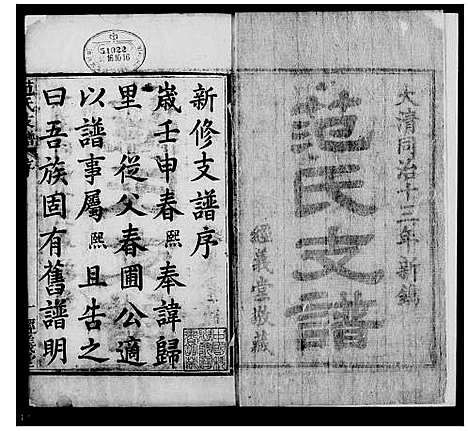 大清同治十二年新鐫
范氏支譜
經義堂收藏
新修支譜序
歲壬申春熙奉諱歸
里 從父春圃公適
以譜事屬熙且告之
曰吾族固有舊譜明
51022